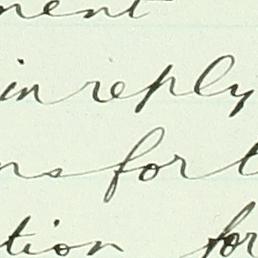 ment
in reply
ns for t
tion for